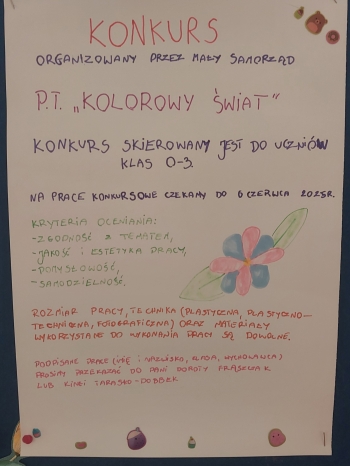 KONKURS
ORGANIZOWANY PRZEZ MAŁY SAMORZĄD
P.T. „KOLOROWY ŚWIAT"
KONKURS SKIEROWANY JEST DO UCZNIÓW
KLAS 0-3.
NA PRACE KONKURSOWE CZEKAMY DO 6 CZERWCA 2025R.
KRYTERIA OCENIANIA:
- ZGODNOŚĆ Z TEMATEM,
- JAKOŚĆ I ESTETYKA PRACY,
- POMYSŁOWOŚĆ,
- SAMODZIELNOŚĆ.
ROZMIAR PRACY, TECHNIKA (PLASTYCZNA, PLASTYCZNO-
TECHNICZNA, FOTOGRAFICZNA) ORAZ MATERIAŁY
WYKORZYSTANE DO WYKONANIA PRACY SĄ DOWOLNE.
PODPISANE PRACE (IMIĘ I NAZWISKO, KLASA, WYCHOWAWCA)
PROSIMY PRZEKAZAĆ DO PANI DOROTY FRĄSZCZAK
LUB KINGI TARASKO-DOBBEK